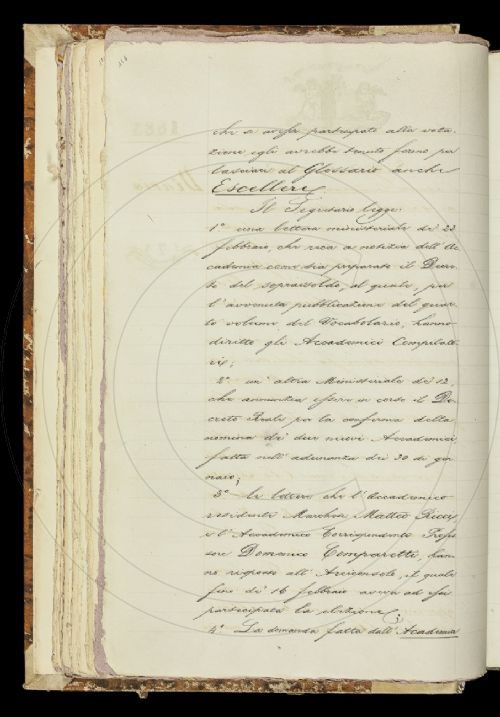 che se avesse partecipato alla vota-
zione egli avrebbe tenuto fermo per
lasciare al Glossario anche
Escellere.
Il Segretario legge:
1° una lettera ministeriale de' 23
febbraio, che reca a notizia dell'Ac-
cademia come sia preparato il Decre-
to del soprassoldo, al quale, per
l'avvenuta pubblicazione del quar-
to volume del Vocabolario, hanno
diritto gli Accademici Compilato-
ri;
2° un'altra Ministeriale de' 12,
che annunzia essere in corso il De-
creto Reale per la conferma della
nomina di due nuovi Accademici
fatta nell'adunanza dei 30 di gen-
naio;
3° le lettere che l'Accademico
residente Marchese Matteo Ricci,
e l'Accademico Corrispondente Profes-
sore Domenico Comparetti, han-
no risposto all'Arciconsolo, il quale
fino di' 16 febbraio aveva ad essi
partecipata la elezione;
4° La domanda fatta dall'Accademia